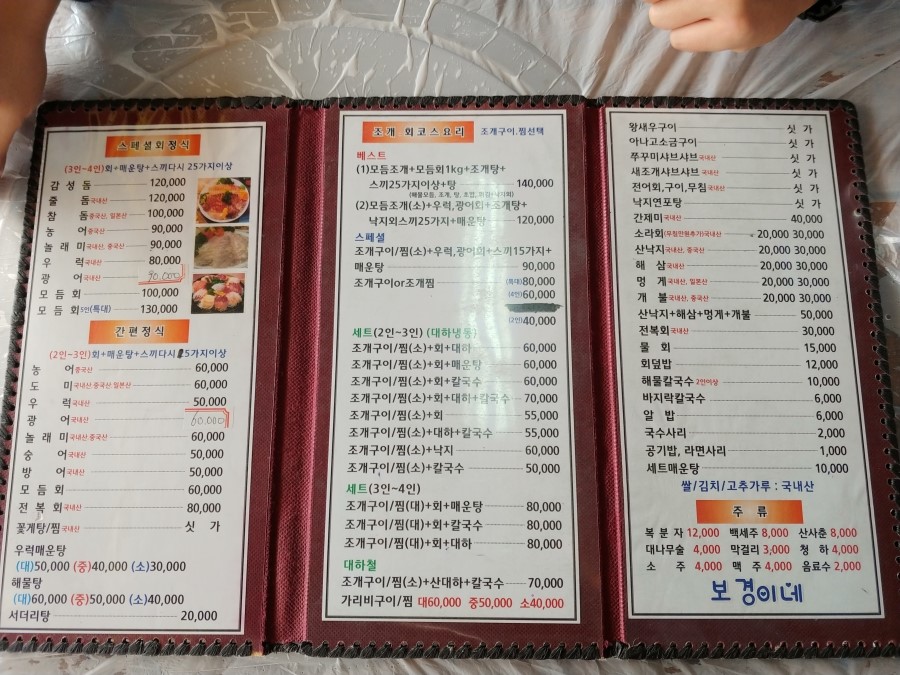 스페셜회정식
(3인~4인)회+매운탕+스끼다시 25가지이상
감성돔 120,000
줄돔국내산 120,000
참돔국내산, 일본산 100,000
농어중국산 90,000
놀래미국내산, 중국산 90,000
우럭국내산 80,000
광어국내산 90,000
모듬회 100,000
모듬회5인(특대) 130,000
간편정식
(2인~3인)회+매운탕+스끼다시 5가지이상
농어중국산 60,000
도미국내산.중국산.일본산 60,000
우럭국내산 50,000
광어국내산 60,000
놀래미국내산.중국산 60,000
숭어국내산 50,000
방어국내산 50,000
모듬회 60,000
전복회국내산 80,000
꽃게탕/찜국내산 싯가
우럭매운탕
(대)50,000 (중)40,000 (소)30,000
해물탕
(대)60,000 (중)50,000 (소)40,000
서더리탕 20,000
조개.회코스요리 조개구이.찜선택
베스트
(1)모듬조개+모듬회1kg+조개탕+
스끼25가지이상+탕 140,000
(2)모듬조개(소)+우럭,광어회+조개탕+
낙지회스끼25가지+매운탕 120,000
스페셜
조개구이/찜(소)+우럭,광어회+스끼15가지+
매운탕 90,000
조개구이or조개찜 (특대)80,000
(4인)60,000
(2인)40,000
세트(2인~3인) (대하냉동)
조개구이/찜(소)+회+대하 60,000
조개구이/찜(소)+회+매운탕 60,000
조개구이/찜(소)+회+칼국수 60,000
조개구이/찜(소)+회+대하+칼국수 70,000
조개구이/찜(소)+회 55,000
조개구이/찜(소)+대하+칼국수 55,000
조개구이/찜(소)+낙지 50,000
조개구이/찜(소)+칼국수 50,000
세트(3인~4인)
조개구이/찜(대)+회+매운탕 80,000
조개구이/찜(대)+회+칼국수 80,000
조개구이/찜(대)+회+대하 80,000
대하철
조개구이/찜(소)+산대하+칼국수 70,000
가리비구이/찜 대60,000 중50,000 소40,000
왕새우구이 싯가
아나고소금구이 싯가
쭈꾸미샤브샤브국내산 싯가
새조개샤브샤브국내산 싯가
전어회,구이,무침국내산 싯가
낙지연포탕 싯가
간제미국내산 40,000
소라회(무침만원추가)국내산 20,000 30,000
산낙지국내산, 중국산 20,000 30,000
해삼국내산 20,000 30,000
멍게국내산, 일본산 20,000 30,000
개불국내산, 중국산 20,000 30,000
산낙지+해삼+멍게+개불 50,000
전복회국내산 30,000
물회 15,000
회덮밥 12,000
해물칼국수2인이상 10,000
바지락칼국수 6,000
알밥 6,000
국수사리 2,000
공기밥, 라면사리 1,000
세트매운탕 10,000
쌀/김치/고추가루 : 국내산
주류
복분자 12,000 백세주 8,000 산사춘 8,000
대나무술 4,000 막걸리 3,000 청하 4,000
소주 4,000 맥주 4,000 음료수 2,000
보경이네